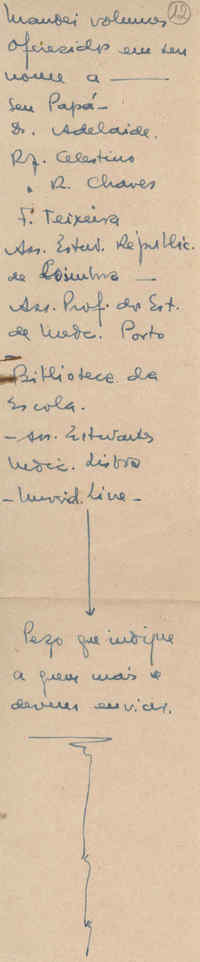 Mandei volumes (12)
oferecidos em seu
nome a —
Seu Papá —
D. Adelaide.
R. Celestino
" R. Chaves
F. Teixeira
Ass. Estud. Républic.
de Coimbra —
Ass. Prof. do Est.
de Medic. Porto
— Biblioteca da
Escola.
— Ass. Estudantes
Medic. Lisboa
— Univid. Livre —
Peço que indique
a quem mais se
devem enviar.